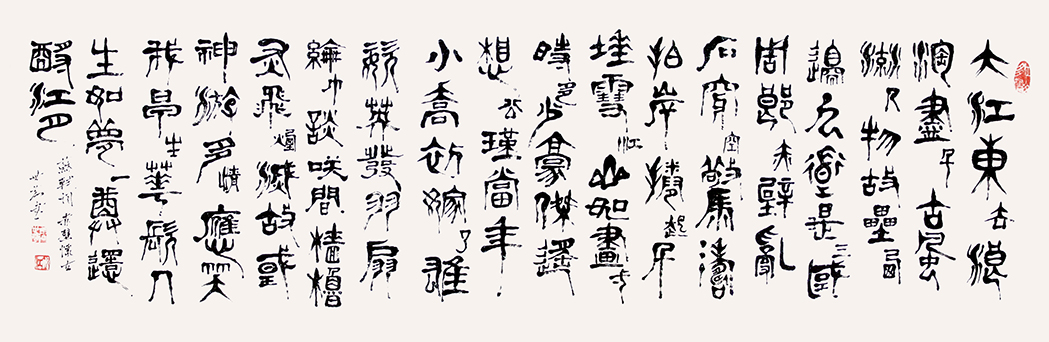 大江東去浪
淘盡千古風
流人物故壘西
邊人道是三國
周郎赤壁亂
石穿空驚濤
拍岸捲起千
堆雪江山如畫一
時多少豪傑遥
想公瑾當年
小喬初嫁了雄
姿英發羽扇
綸巾談笑間檣櫓
灰飛煙滅故國
神遊多情應笑
我早生華髮人
生如夢一尊還
酹江月
蘇軾詞赤壁懷古